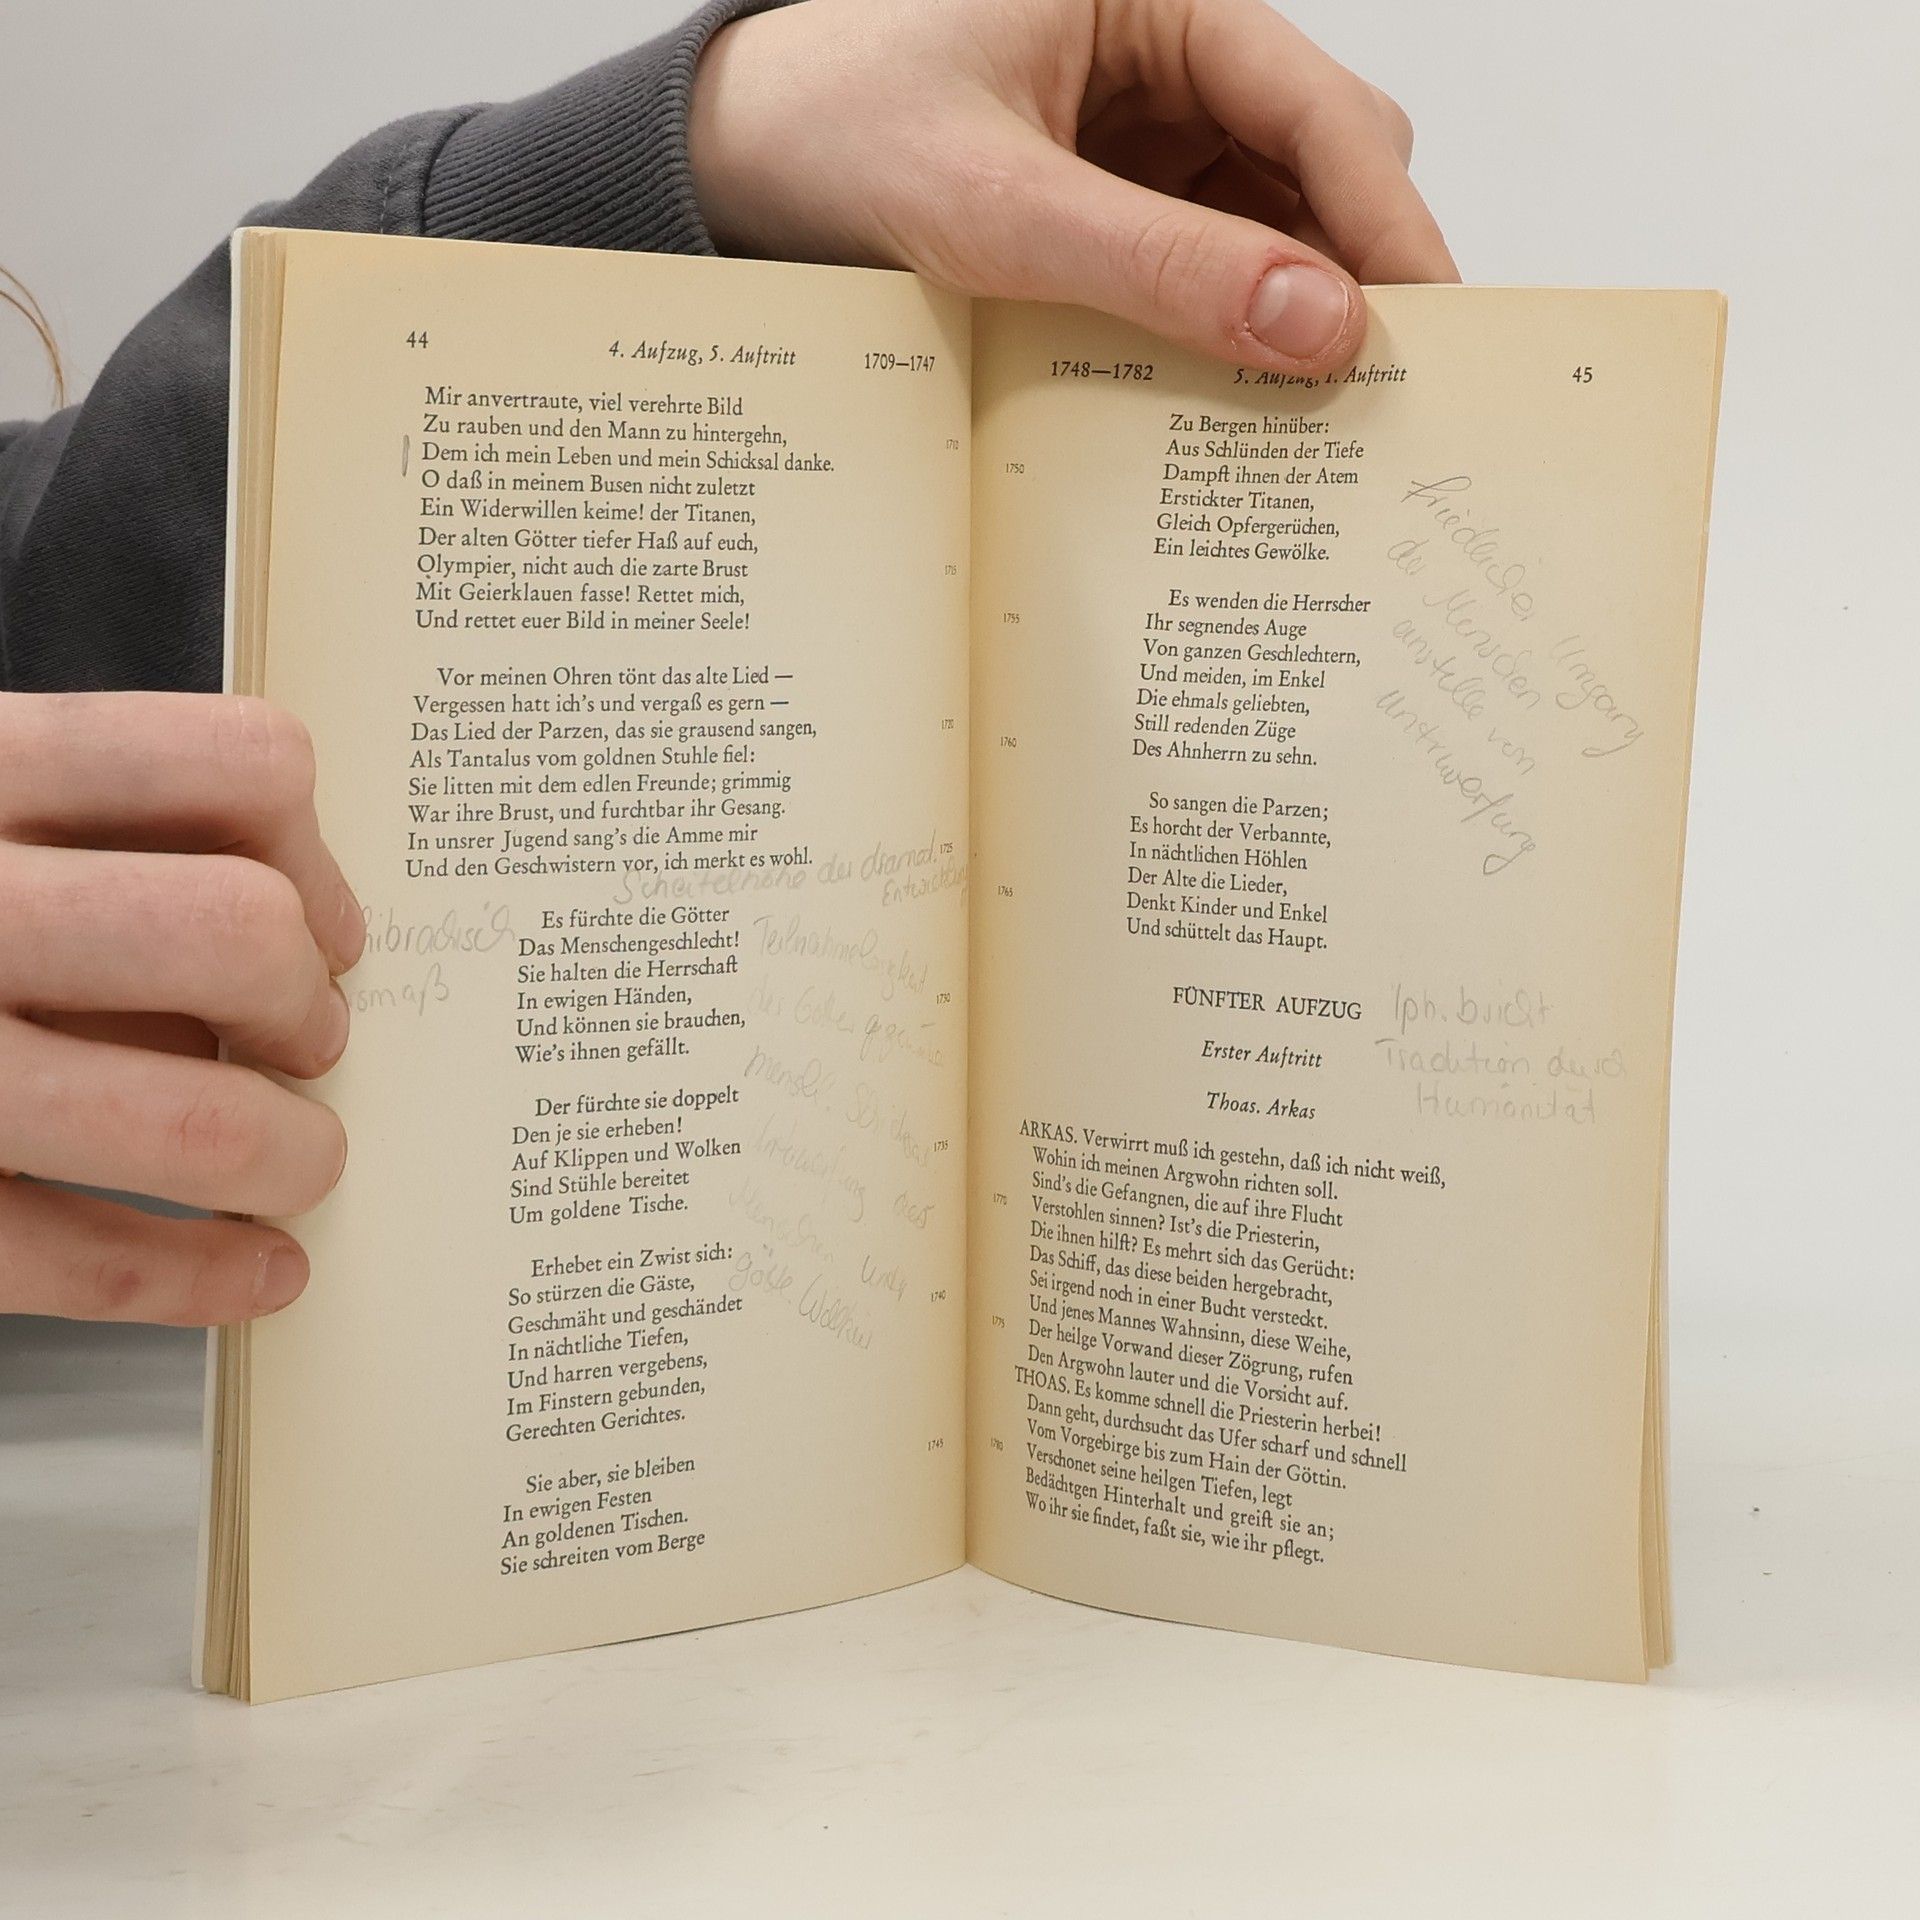 44
4. Aufzug, 5. Auftritt
1709—1747
Mir anvertraute, viel verehrte Bild
Zu rauben und den Mann zu hintergehn,
1710
Dem ich mein Leben und mein Schicksal danke.
O daß in meinem Busen nicht zuletzt
Ein Widerwillen keime! der Titanen,
Der alten Götter tiefer Haß auf euch,
Olympier, nicht auch die zarte Brust
1715
Mit Geierklauen fasse! Rettet mich,
Und rettet euer Bild in meiner Seele!
Vor meinen Ohren tönt das alte Lied —
Vergessen hatt ich's und vergaß es gern —
Das Lied der Parzen, das sie grausend sangen,
1720
Als Tantalus vom goldnen Stuhle fiel:
Sie litten mit dem edlen Freunde; grimmig
War ihre Brust, und furchtbar ihr Gesang.
In unsrer Jugend sang's die Amme mir
Und den Geschwistern vor, ich merkt es wohl.
1725
Scheitelhöhe der dramat.
Entwicklung
Es fürchte die Götter
Das Menschengeschlecht!
Sie halten die Herrschaft
In ewigen Händen,
1730
Und können sie brauchen,
Wie's ihnen gefällt.
Der fürchte sie doppelt
Den je sie erheben!
Auf Klippen und Wolken
1735
Sind Stühle bereitet
Um goldene Tische.
Erhebet ein Zwist sich:
So stürzen die Gäste,
Geschmäht und geschändet
1740
In nächtliche Tiefen,
Und harren vergebens,
Im Finstern gebunden,
Gerechten Gerichtes.
Sie aber, sie bleiben
1745
In ewigen Festen
An goldenen Tischen.
Sie schreiten vom Berge
Teilnahmelosigkeit
der Götter
menschl.
Menschen unter
göttl. Willkür
1748—1782
5. Aufzug, 1. Auftritt
45
Zu Bergen hinüber:
Aus Schlünden der Tiefe
1750
Dampft ihnen der Atem
Erstickter Titanen,
Gleich Opfergerüchen,
Ein leichtes Gewölke.
Es wenden die Herrscher
Ihr segnendes Auge
1755
Von ganzen Geschlechtern,
Und meiden, im Enkel
Die ehmals geliebten,
Still redenden Züge
Des Ahnherrn zu sehn.
1760
So sangen die Parzen;
Es horcht der Verbannte,
In nächtlichen Höhlen
Der Alte die Lieder,
1765
Denkt Kinder und Enkel
Und schüttelt das Haupt.
friedlicher Umgang
der Menschen
anstelle von
Unterwerfung
FÜNFTER AUFZUG
Iph. bricht
Tradition durch
Humanität
Erster Auftritt
Thoas. Arkas
ARKAS. Verwirrt muß ich gestehn, daß ich nicht weiß,
Wohin ich meinen Argwohn richten soll.
Sind's die Gefangnen, die auf ihre Flucht
Verstohlen sinnen? Ist's die Priesterin,
1770
Die ihnen hilft? Es mehrt sich das Gerücht:
Das Schiff, das diese beiden hergebracht,
Sei irgend noch in einer Bucht versteckt.
Und jenes Mannes Wahnsinn, diese Weihe,
Der heilge Vorwand dieser Zögrung, rufen
1775
Den Argwohn lauter und die Vorsicht auf.
THOAS. Es komme schnell die Priesterin herbei!
Dann geht, durchsucht das Ufer scharf und schnell
Vom Vorgebirge bis zum Hain der Göttin.
Verschonet seine heilgen Tiefen, legt
1780
Bedächtgen Hinterhalt und greift sie an;
Wo ihr sie findet, faßt sie, wie ihr pflegt.